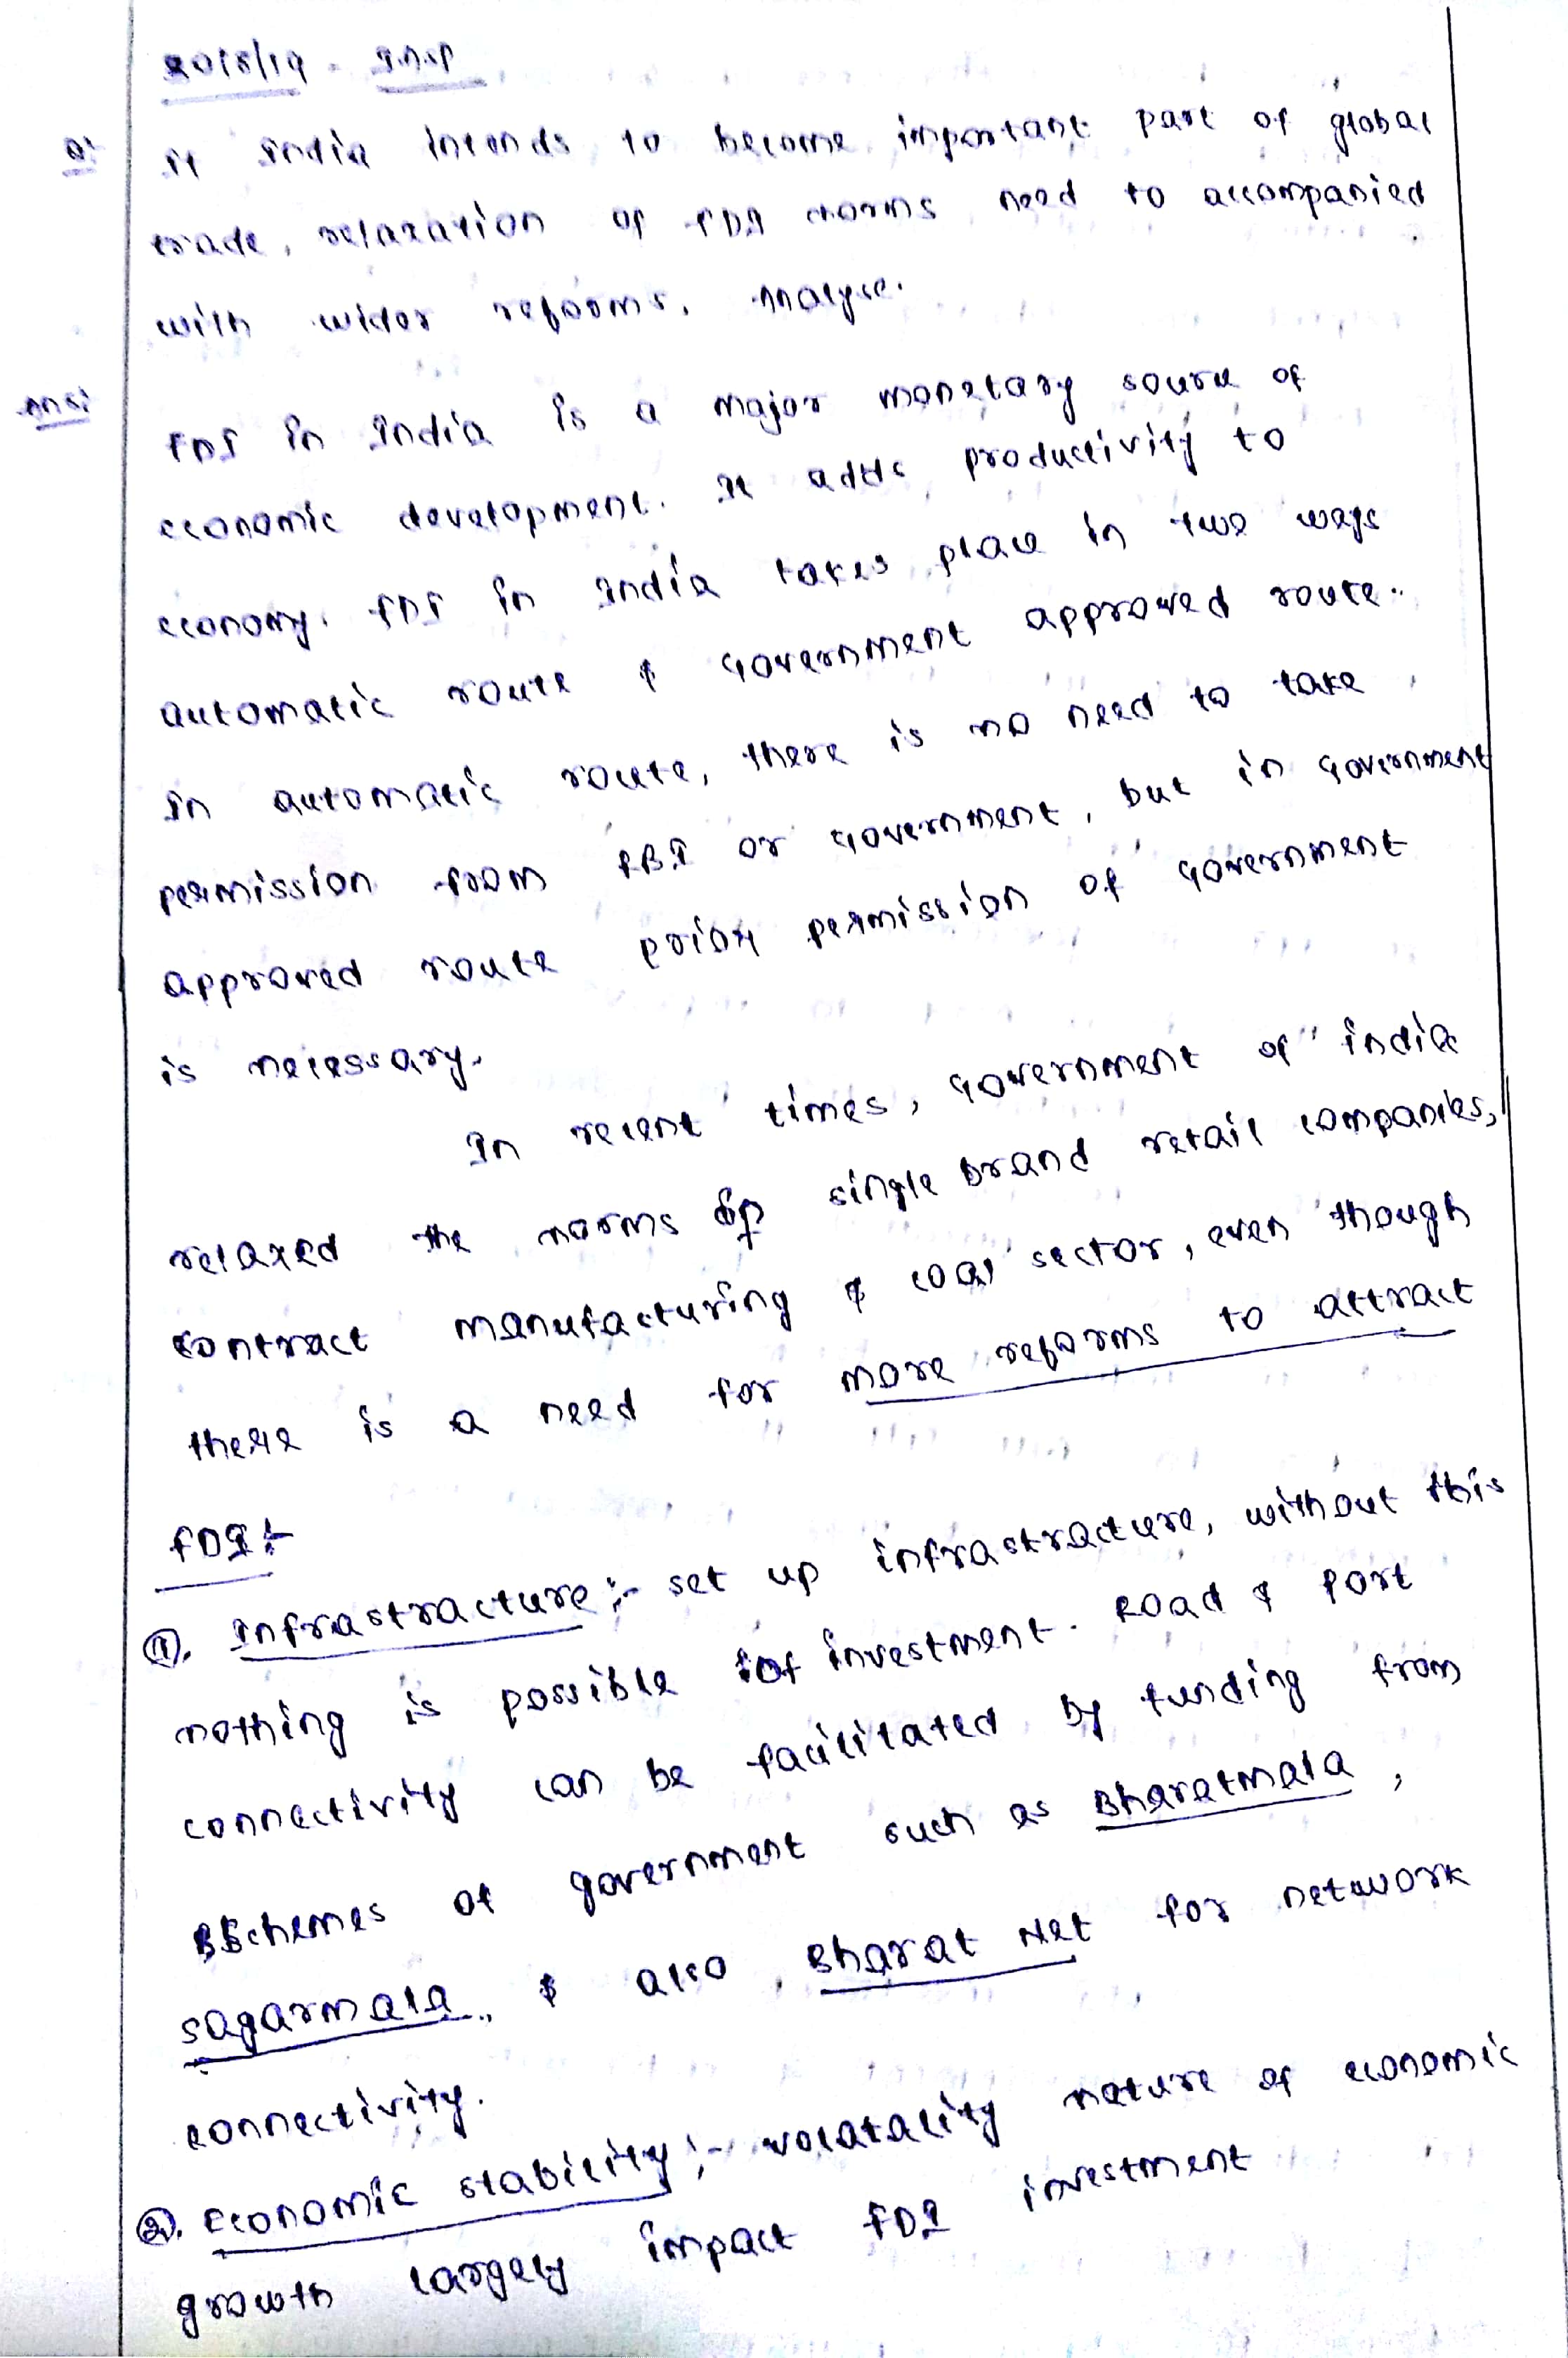 2018/19 -
Q: If India intends to become important part of global
trade, relaxation of FDI norms need to accompanied
with wider reforms. Analyse.
Ans: FDI in India is a major monetary source of
economic development. It adds productivity to
economy. FDI in India takes place in two ways
automatic route & Government approved route.
In automatic route, there is no need to take
permission from RBI or Government, but in Government
approved route prior permission of Government
is necessary.
In recent times, Government of India
relaxed the norms of single brand retail companies,
contract manufacturing & coal sector, even though
there is a need for more reforms to attract
FDI:-
①. Infrastracture:- set up infrastracture, without this
nothing is possible for investment. Road & Port
connectivity can be facilitated by funding from
schemes of government such as Bharatmala,
sagarmala, & also, Bharat Net for network
connectivity.
②. Economic stability:- volatality nature of economic
growth largely impact FDI investment